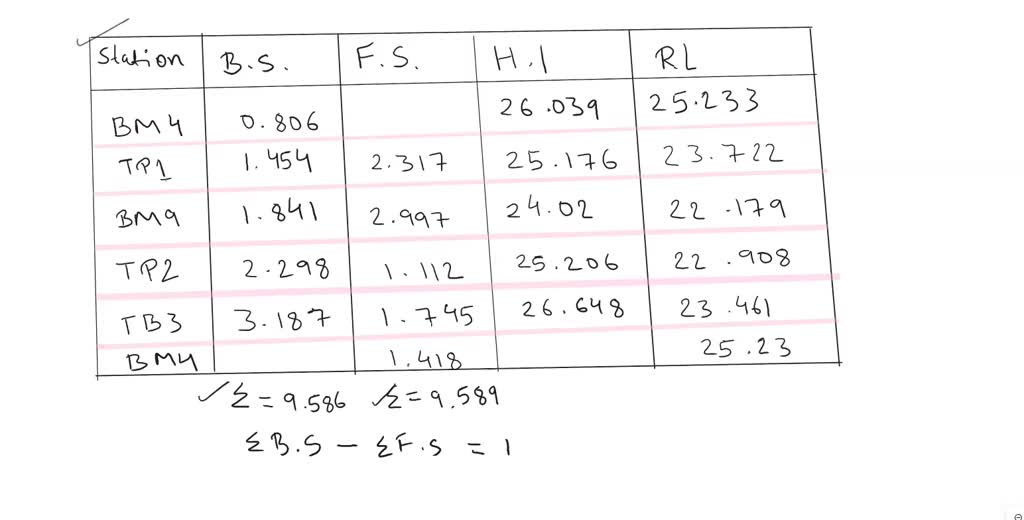 Station B.S. F.S. H.I RL
BM4 0.806 26.039 25.233
TP1 1.454 2.317 25.176 23.722
BM9 1.841 2.997 24.02 22.179
TP2 2.298 1.112 25.206 22.908
TB3 3.187 1.745 26.648 23.461
BM4 1.418 25.23
Σ = 9.586 Σ = 9.589
ΣB.S – ΣF.S = 1